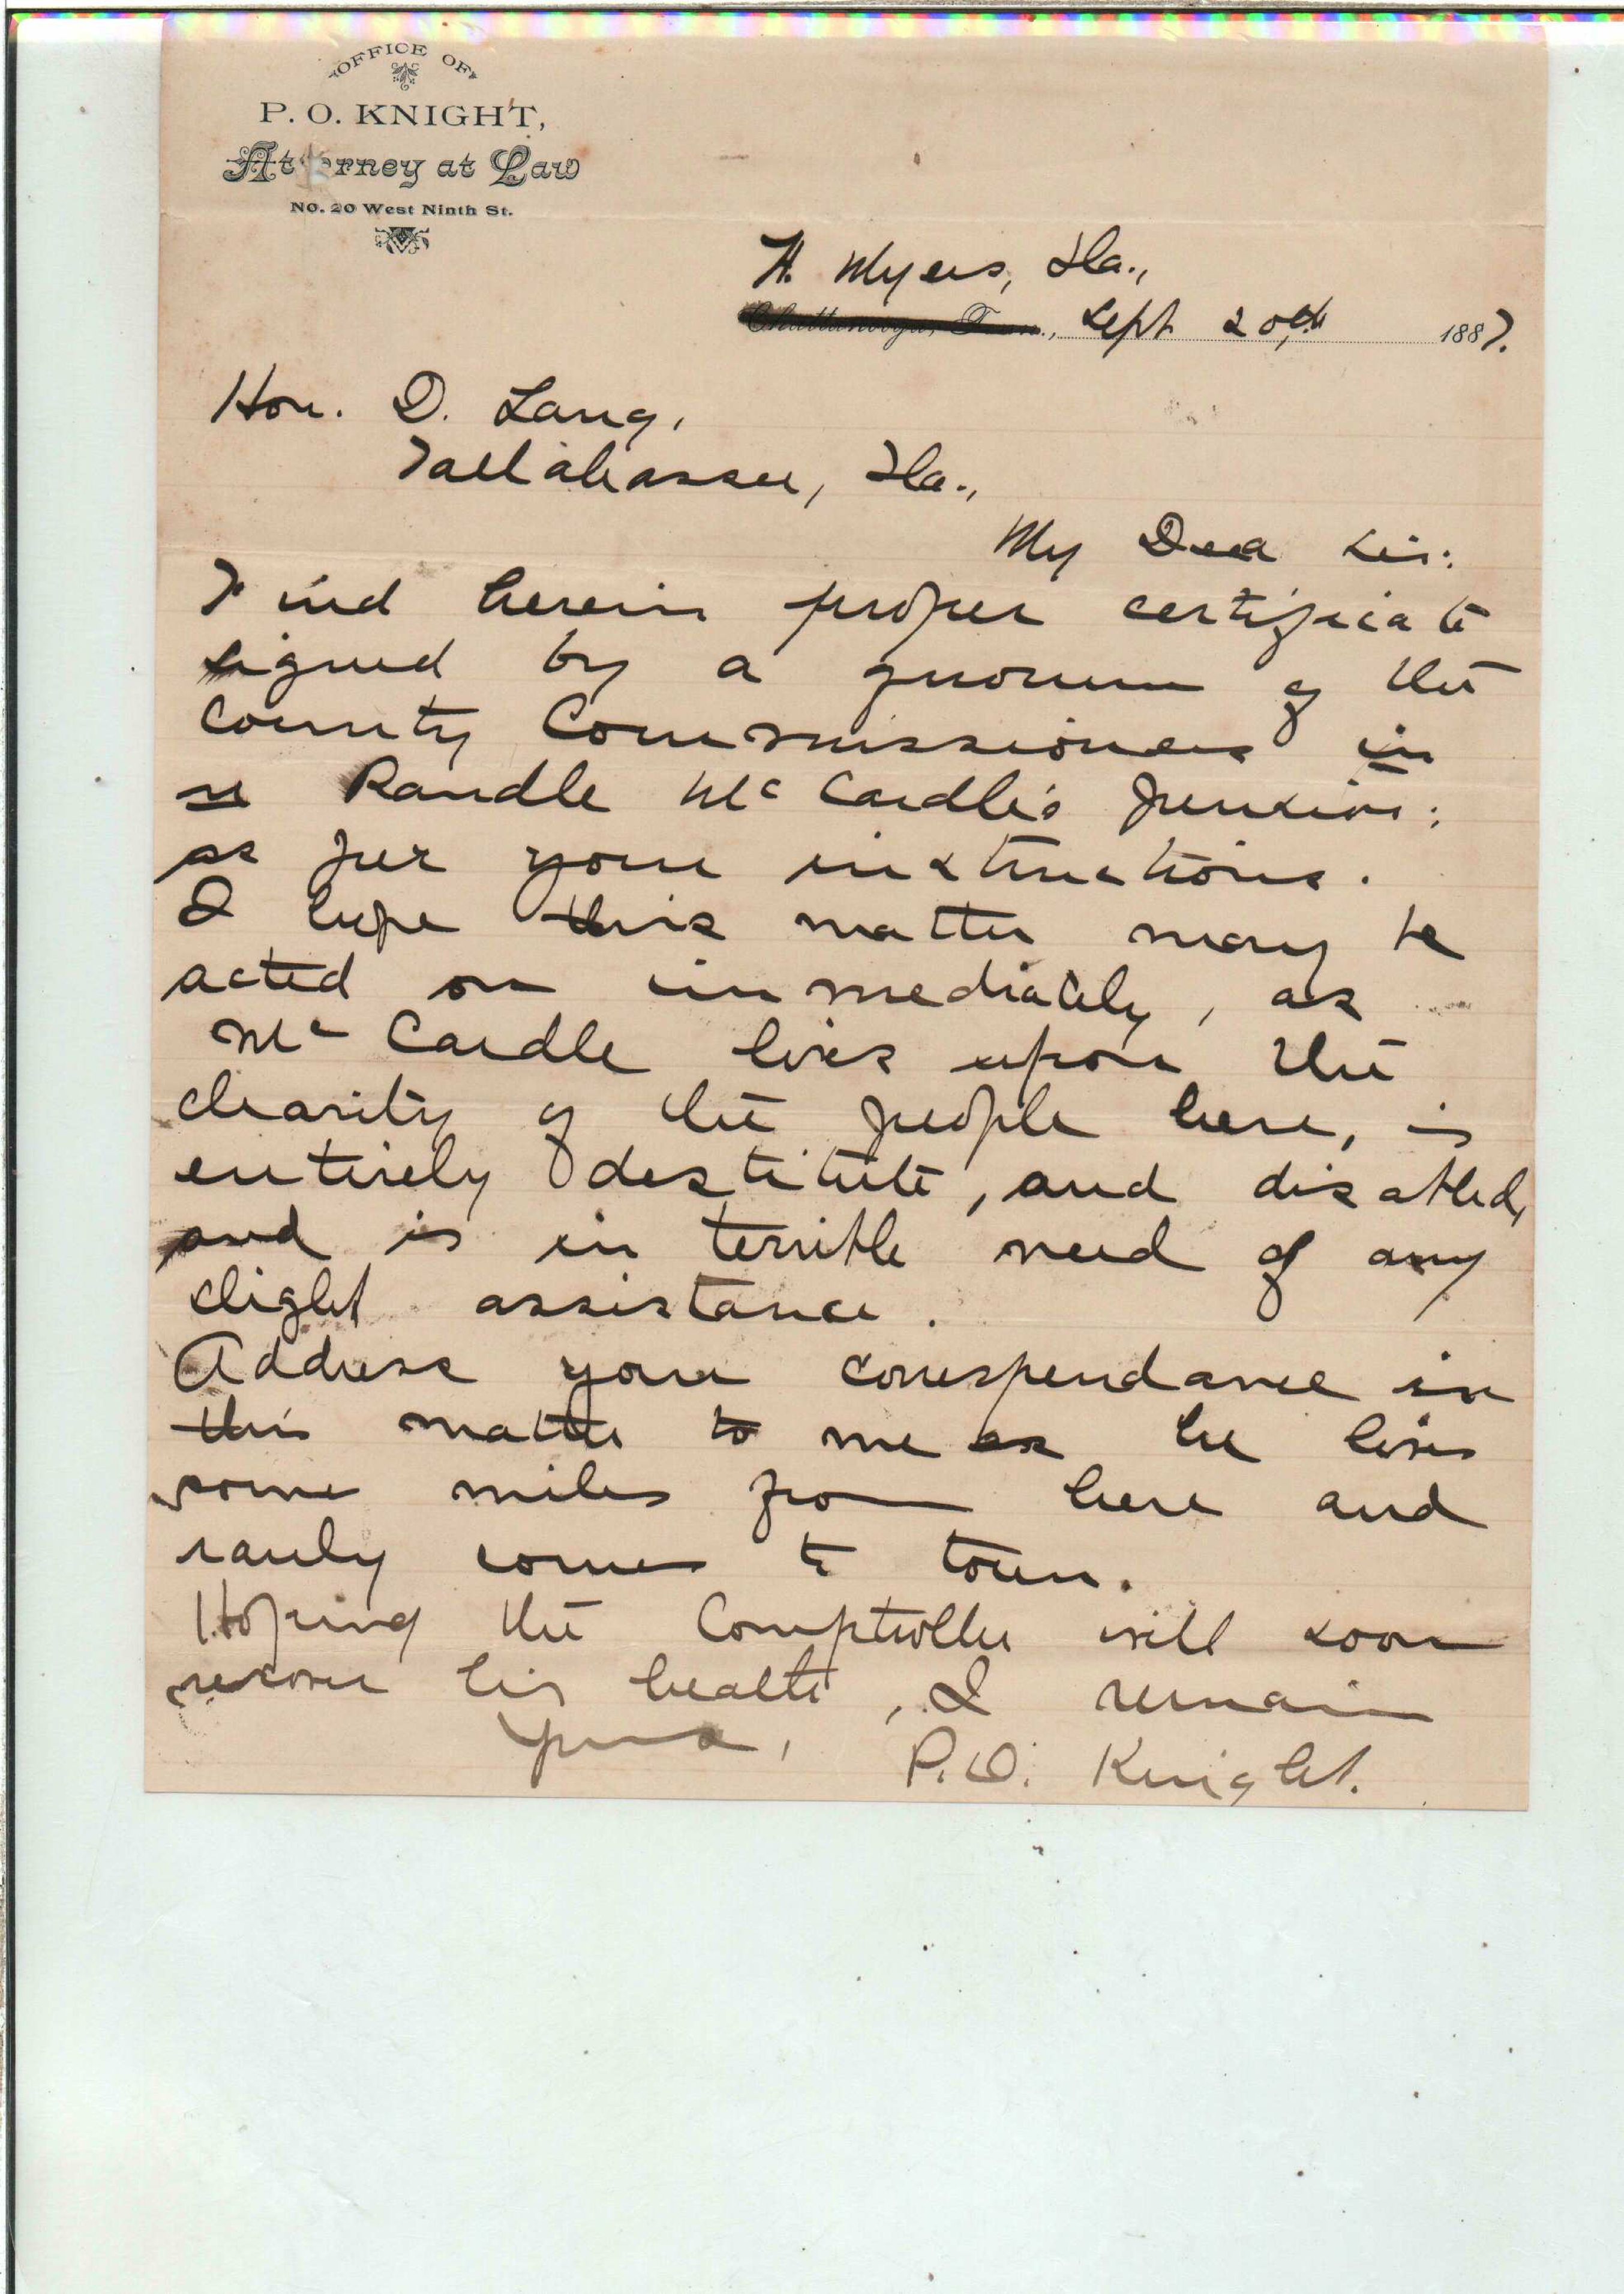 OFFICE OF
P. O. KNIGHT,
Attorney at Law
NO. 20 West Ninth St.
Ft. Myers, Fla.,
Chattanooga, Tenn., Sept 20th, 1887.
Hon. D. Lang,
Tallahassee, Fla.,
My Dear Sir:
Find herein proper certificate
signed by a quorum of the
County Commissioners in
re Randle McCardle's pension:
as per your instructions.
I hope this matter may be
acted on immediately, as
McCardle lives upon the
charity of the people here, is
entirely destitute, and disabled,
and is in terrible need of any
slight assistance.
Address your correspendance in
this matter to me as he lives
some miles from here and
rarely comes to town.
Hoping the Comptroller will soon
recover his health, I remain
Yours, P.O. Knight.